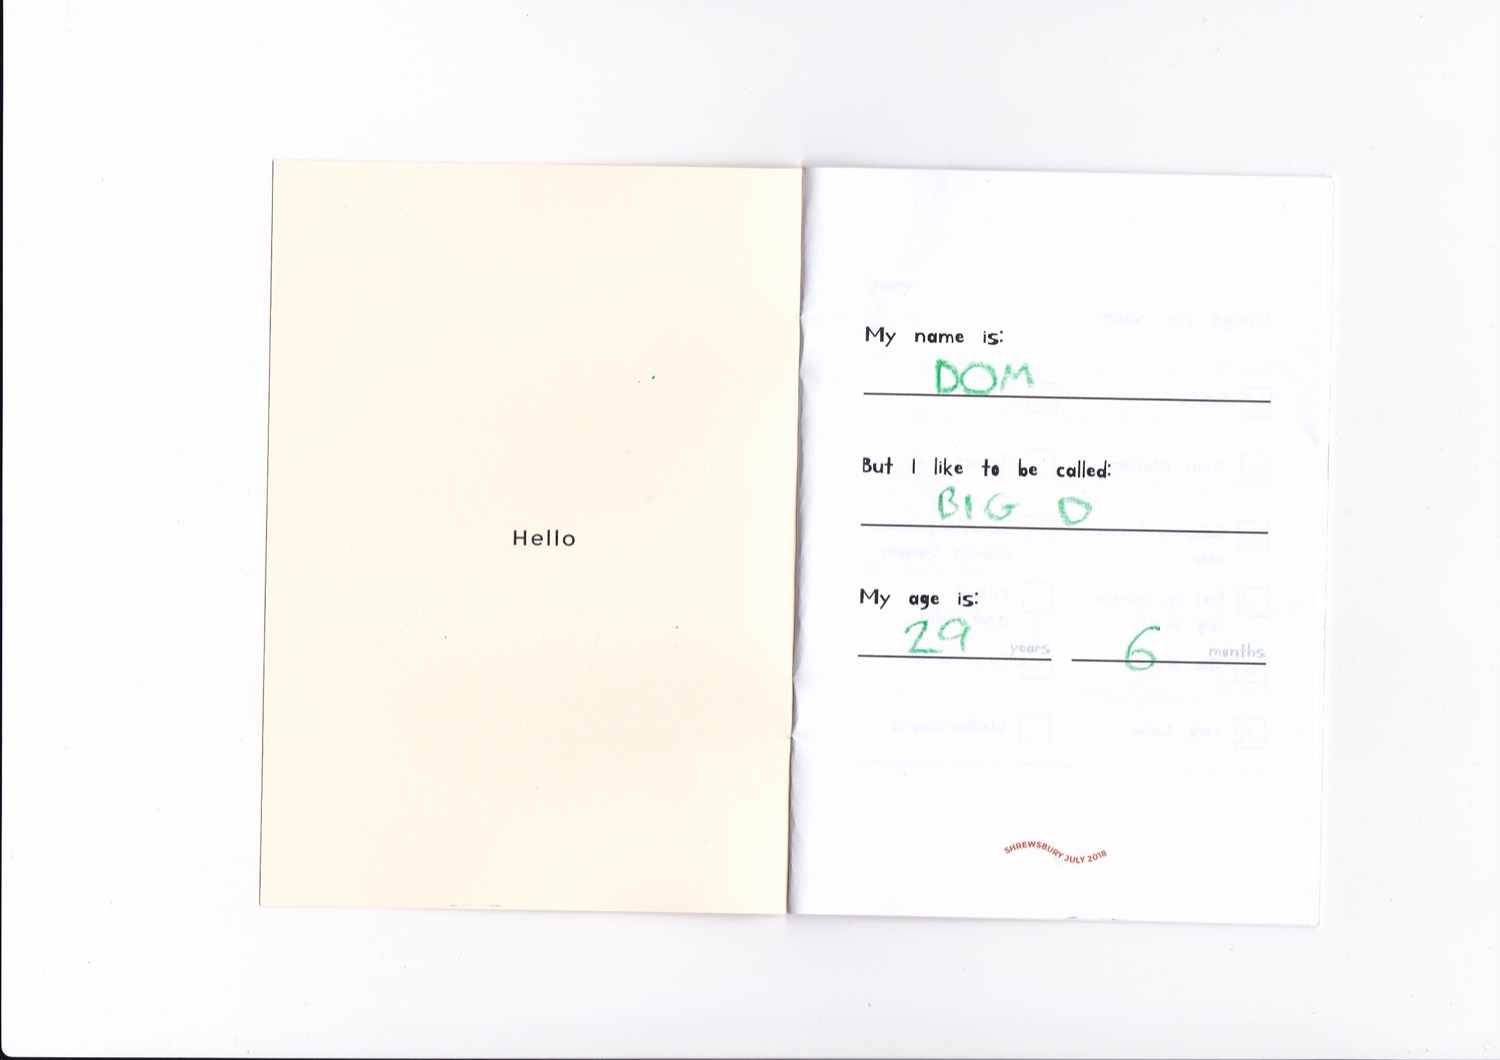 Hello
My name is:
DOM
But I like to be called:
BIG D
My age is:
29 years 6 months
SHREWSBURY JULY 2018